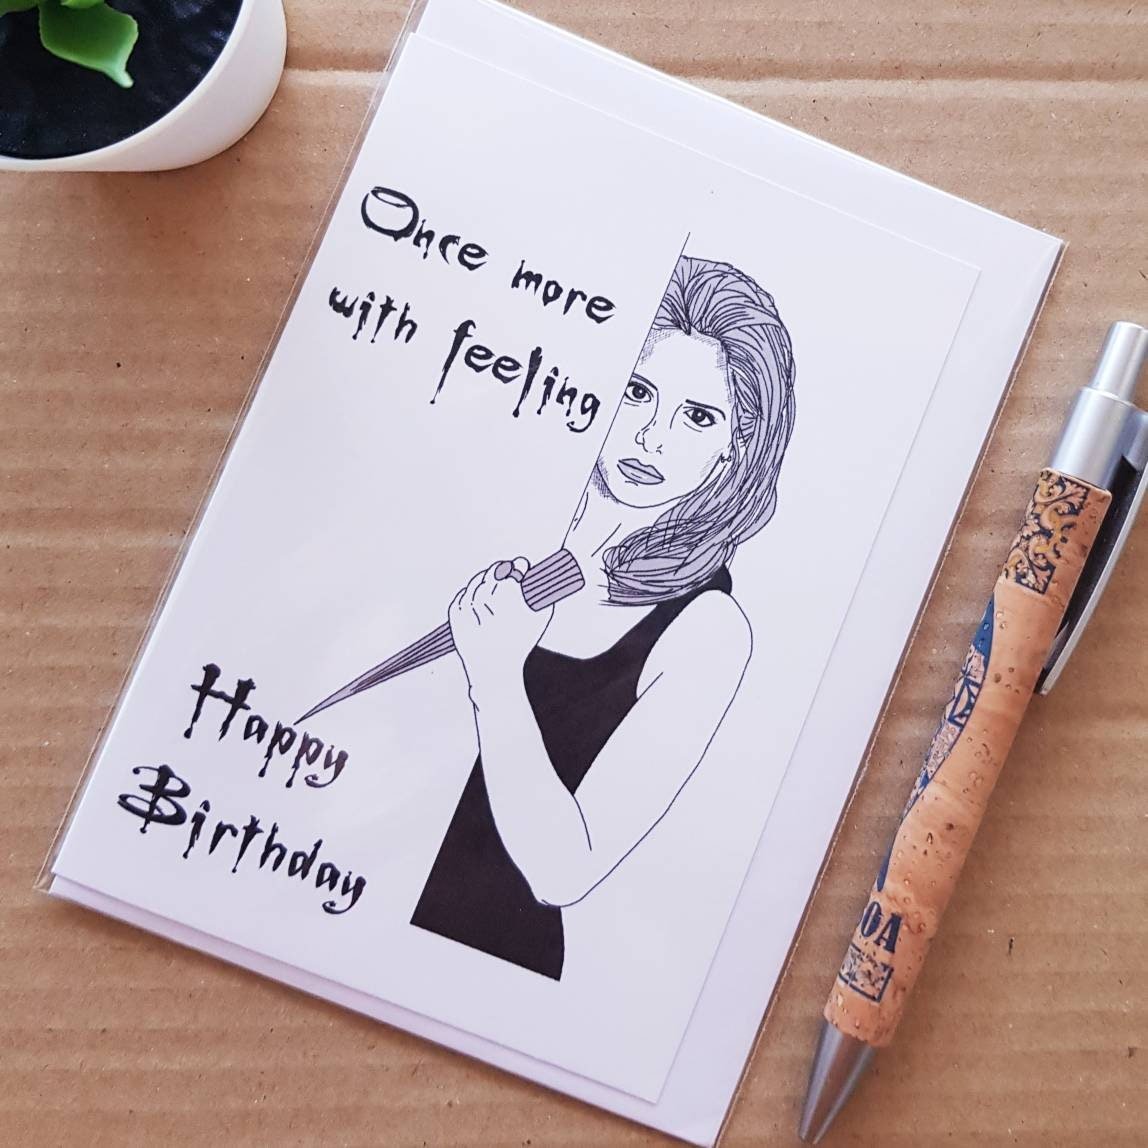 Once more
with feeling
Happy
Birthday
OA